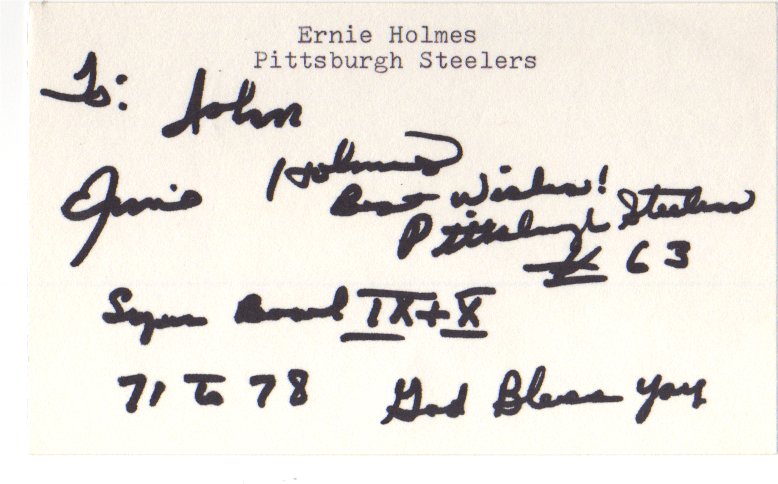 Ernie Holmes
Pittsburgh Steelers
To: John
Ernie Holmes
Best Wishes!
Pittsburgh Steelers
# 63
Super Bowl IX + X
71 To 78 God Bless You